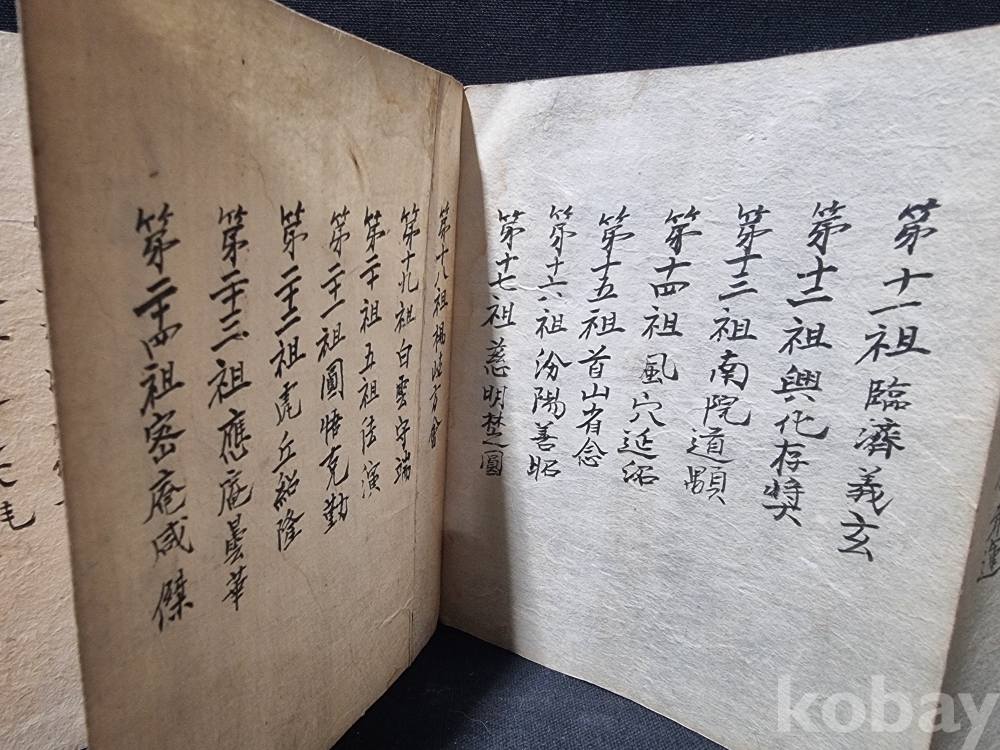 第十一祖臨濟義玄
第十二祖興化存獎
第十三祖南院道顒
第十四祖風穴延沼
第十五祖首山省念
第十六祖汾陽善昭
第十七祖慈明楚圓
第十八祖楊岐方會
第十九祖白雲守端
第二十祖五祖法演
第二十一祖圓悟克勤
第二十二祖虎丘紹隆
第二十三祖應庵曇華
第二十四祖密庵咸傑
kobay